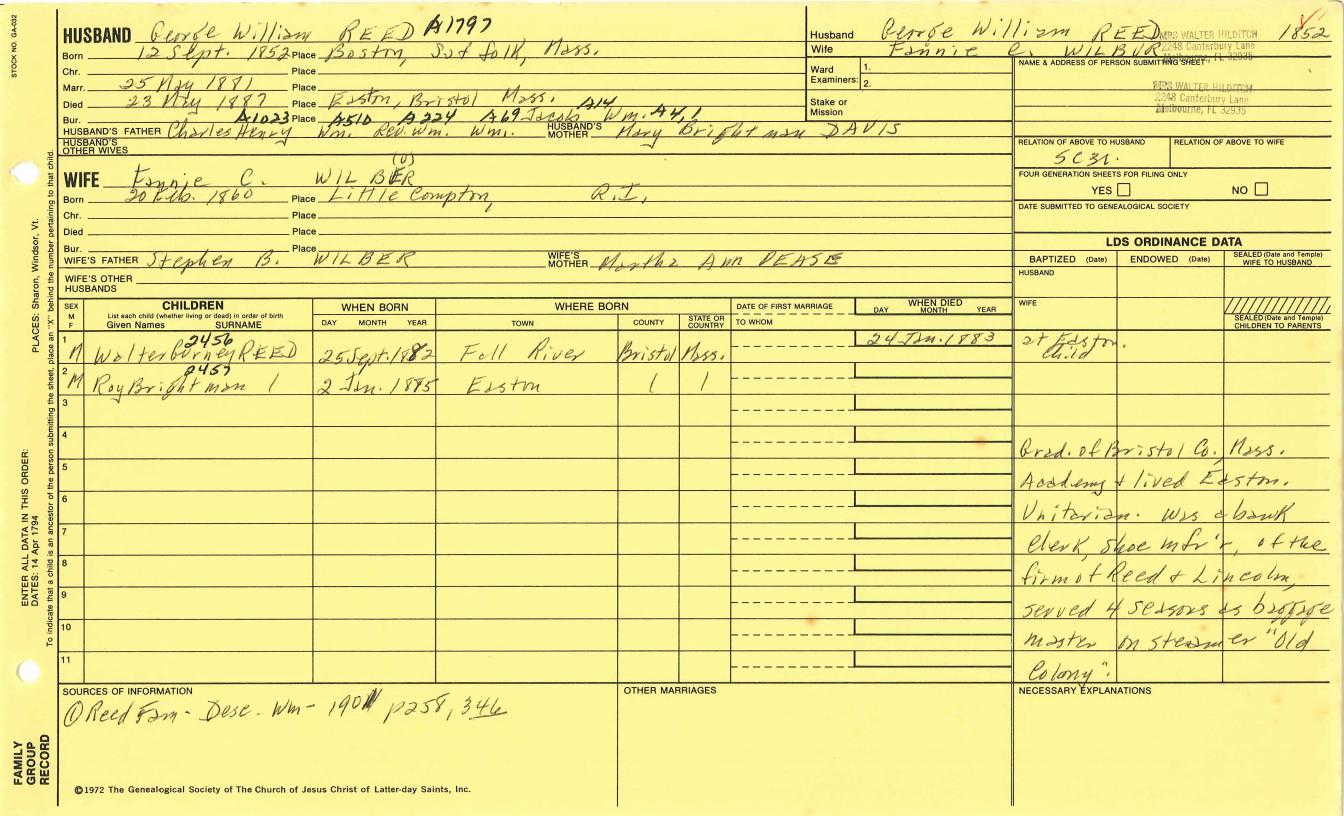 STOCK NO. GA-032
HUSBAND George William REED A1797
Born 12 Sept. 1852 Place Boston, Suffolk, Mass.
Chr. Place
Marr. 25 May 1881 Place
Died 23 May 1887 Place Easton, Bristol Mass.
Bur. Place
A1023 A510 A224 A69 A14 A4,1
HUSBAND'S FATHER Charles Henry Wm. Rev. Wm. Wm. Jacob Wm. HUSBAND'S MOTHER Mary Brightman DAVIS
HUSBAND'S OTHER WIVES
Husband George William REED 1852
Wife Fannie C. WILBUR
Ward Examiners: 1.
2.
Stake or Mission
NAME & ADDRESS OF PERSON SUBMITTING SHEET
MRS WALTER HILDITCH
2248 Canterbury Lane
Melbourne, FL 32935
MRS WALTER HILDITCH
2248 Canterbury Lane
Melbourne, FL 32935
RELATION OF ABOVE TO HUSBAND RELATION OF ABOVE TO WIFE
5C3r.
FOUR GENERATION SHEETS FOR FILING ONLY
YES NO
DATE SUBMITTED TO GENEALOGICAL SOCIETY
(U)
WIFE Fannie C. WILBER
Born 20 Feb. 1860 Place Little Compton, R.I.
Chr. Place
Died Place
Bur. Place
WIFE'S FATHER Stephen B. WILBER WIFE'S MOTHER Martha Ann PEASE
WIFE'S OTHER HUSBANDS
LDS ORDINANCE DATA
BAPTIZED (Date) ENDOWED (Date) SEALED (Date and Temple) WIFE TO HUSBAND
HUSBAND
WIFE
SEALED (Date and Temple) CHILDREN TO PARENTS
SEX M F CHILDREN List each child (whether living or dead) in order of birth Given Names SURNAME WHEN BORN DAY MONTH YEAR WHERE BORN TOWN COUNTY STATE OR COUNTRY DATE OF FIRST MARRIAGE TO WHOM WHEN DIED DAY MONTH YEAR
2456
1 M Walter REED 25 Sept. 1882 Fall River Bristol Mass. 24 Jan. 1883 at Easton. Child
2457
2 M Roy Brightman 2 Jan. 1885 Easton
3
4
5
6
7
8
9
10
11
Grad. of Bristol Co., Mass.
Academy & lived Easton.
Unitarian. Was a bank
clerk, shoe mfr'r, of the
firm of Reed & Lincoln,
served 4 seasons as baggage
master on steamer "Old
Colony".
SOURCES OF INFORMATION
① Reed Fam- Desc. Wm- 1901 p258, 346
OTHER MARRIAGES
NECESSARY EXPLANATIONS
©1972 The Genealogical Society of The Church of Jesus Christ of Latter-day Saints, Inc.
FAMILY GROUP RECORD
ENTER ALL DATA IN THIS ORDER:
DATES: 14 Apr 1794 PLACES: Sharon, Windsor, Vt.
To indicate that a child is an ancestor of the person submitting the sheet, place an "X" behind the number pertaining to that child.